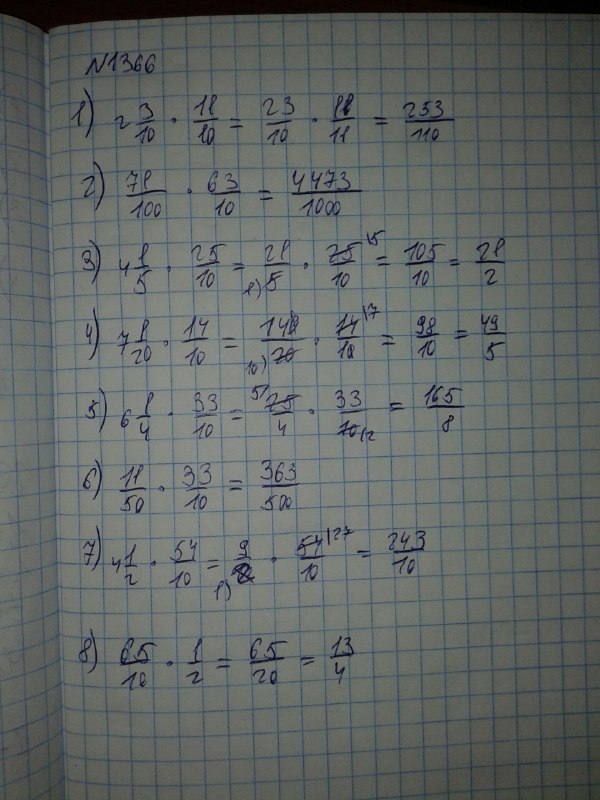 N1366
1) 2 3/10 · 11/10 = 23/10 · 11/11 = 253/110
2) 71/100 · 63/10 = 4473/1000
3) 4 1/5 · 25/10 = 21/5 1) · 25/10 |5 = 105/10 = 21/2
4) 7 1/20 · 14/10 = 141/20 10) · 14/10 |7 = 98/10 = 49/5
5) 6 1/4 · 33/10 = 5) 25/4 · 33/10 |2 = 165/8
6) 11/50 · 33/10 = 363/500
7) 4 1/2 · 54/10 = 9/2 1) · 54/10 |27 = 243/10
8) 65/10 · 1/2 = 65/20 = 13/4